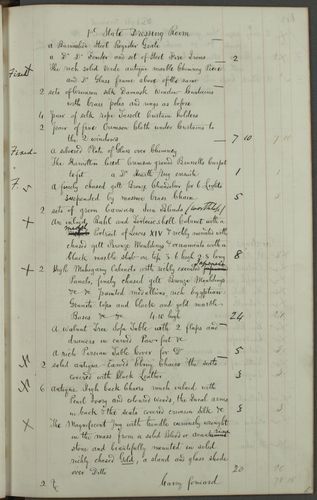 1st State Dressing Room
a Burnished Steel Register Grate
a Do Do Fender and set of Steel Fire Irons 2
Fixed The rich solid Verde antique marble Chimney Piece
and Do Glass frame above of the same
2 sets of Crimson silk Damask Window Curtains
with brass poles and rings as before
4 pair of silk rope Tassell Curtain holders
2 pair of fine Crimson Cloth under Curtains to
the 2 windows 7 10
Fixed a silvered Plate of Glass over Chimney
The Hamilton Crest Crimson ground Brussells Carpet
to fit a Do Hearth Rug ensuite 1
F. a finely chased gilt Bronze Chandelier for 6 Lights
suspended by massive brass chain 5
2 sets of green Canvass Sun Blinds (worthless)
X An inlaid Buhl and Tortoise shell Cabinet with a
Portrait of Louis XIV richly mounted with
chased gilt Bronze Mouldings & ornaments with a
black marble slab on top 8
X 2 High Mahogany Cabinets with richly executed Japanned
Panels, finely chased gilt Bronze Mouldings
&c &c painted medallions, rich Egyptian
Granite tops and black and gold marble
Bases &c &c 4.10 high 24
A walnut Tree Sofa Table with 2 flaps and
drawers in carved Paw feet &c
a rich Persian Table Cover for Do 5
2 solid antique Carved Ebony Chairs the seats
covered with black Leather 3
6 antique high back Chairs much inlaid with
Pearl Ivory and coloured woods, the Ducal arms
in back & the seats covered crimson silk &c 3
X The Magnificent Jug with handle curiously wrought
in the mass from a solid block
stone and beautifully mounted in solid
richly chased Gold, a stand and glass shade
over Ditto 20
Carry forward